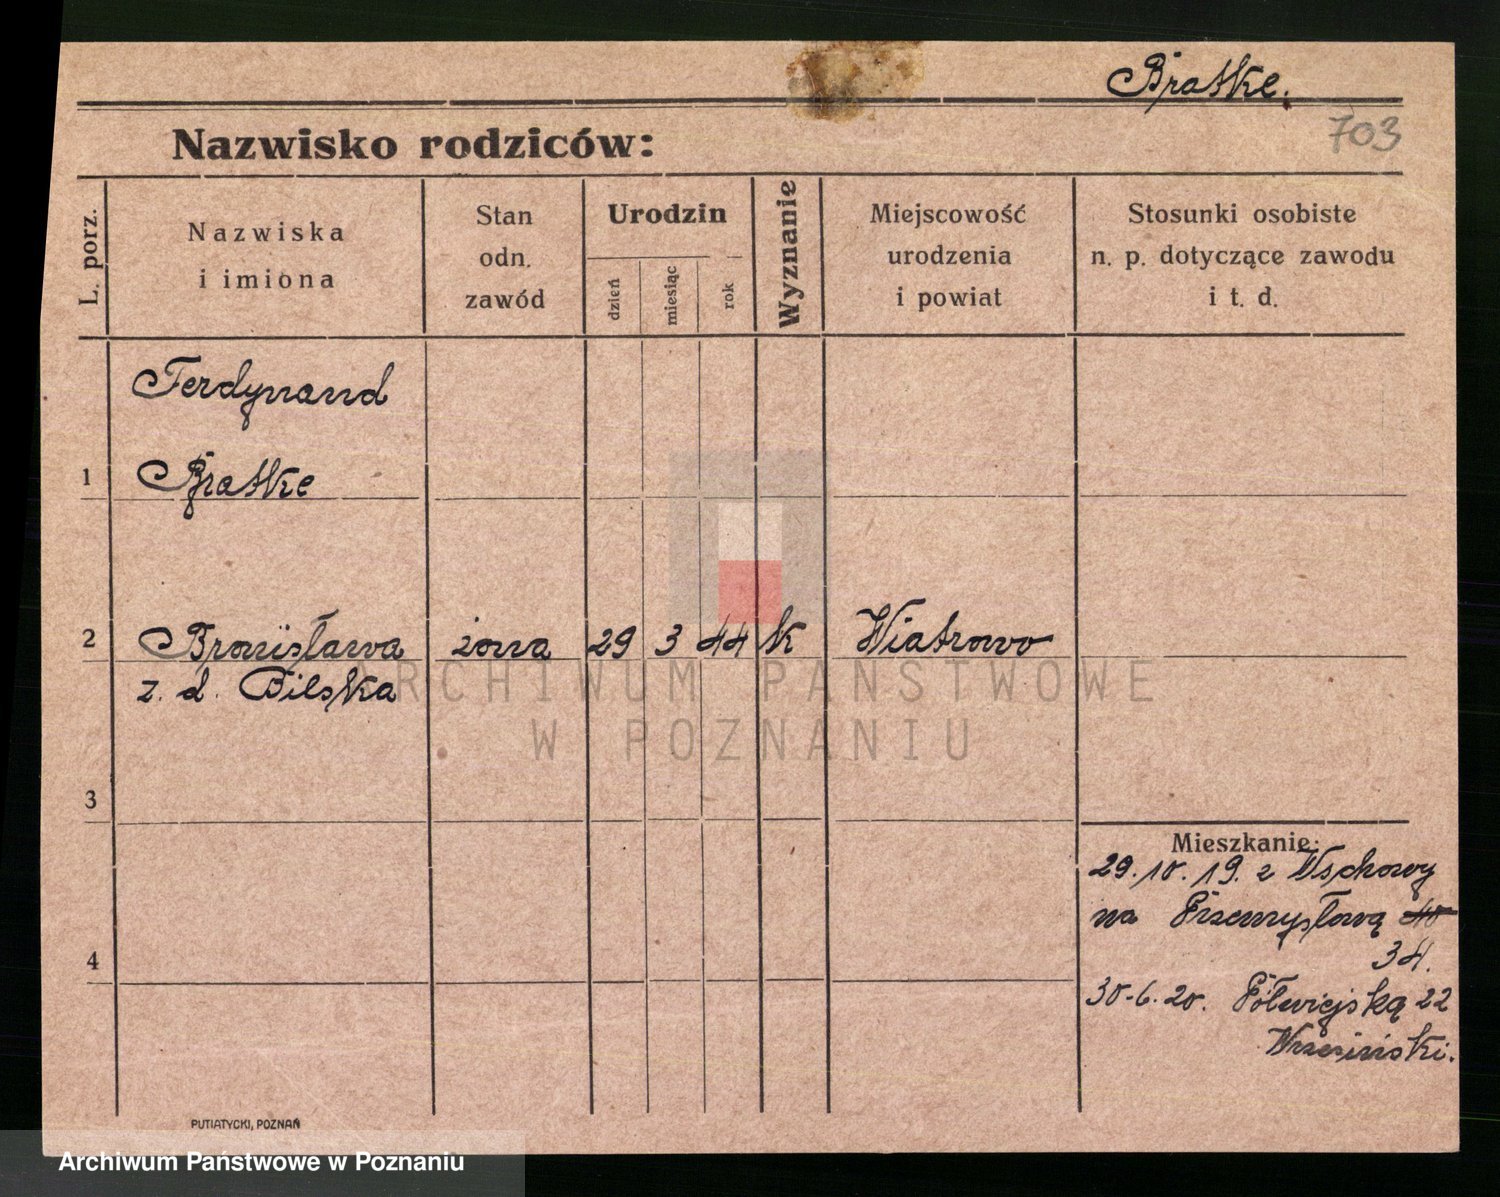 Bratke.
703
Nazwisko rodziców:
L. porz.
Nazwiska
i imiona
Stan
odn.
zawód
Urodzin
dzień
miesiąc
rok
Wyznanie
Miejscowość
urodzenia
i powiat
Stosunki osobiste
n. p. dotyczące zawodu
i t. d.
Ferdynand
1 Bratke
2 Bronisława żona 29 3 44 k Wiatrowo
z. d. Bilska
ARCHIWUM PAŃSTWOWE
W POZNANIU
3
Mieszkanie:
29.10.19. z Wschowy
na Przemysłową 40
34.
4
30-6.20. Półwiejską 22
Wrzesiński.
PUTIATYCKI, POZNAŃ
Archiwum Państwowe w Poznaniu